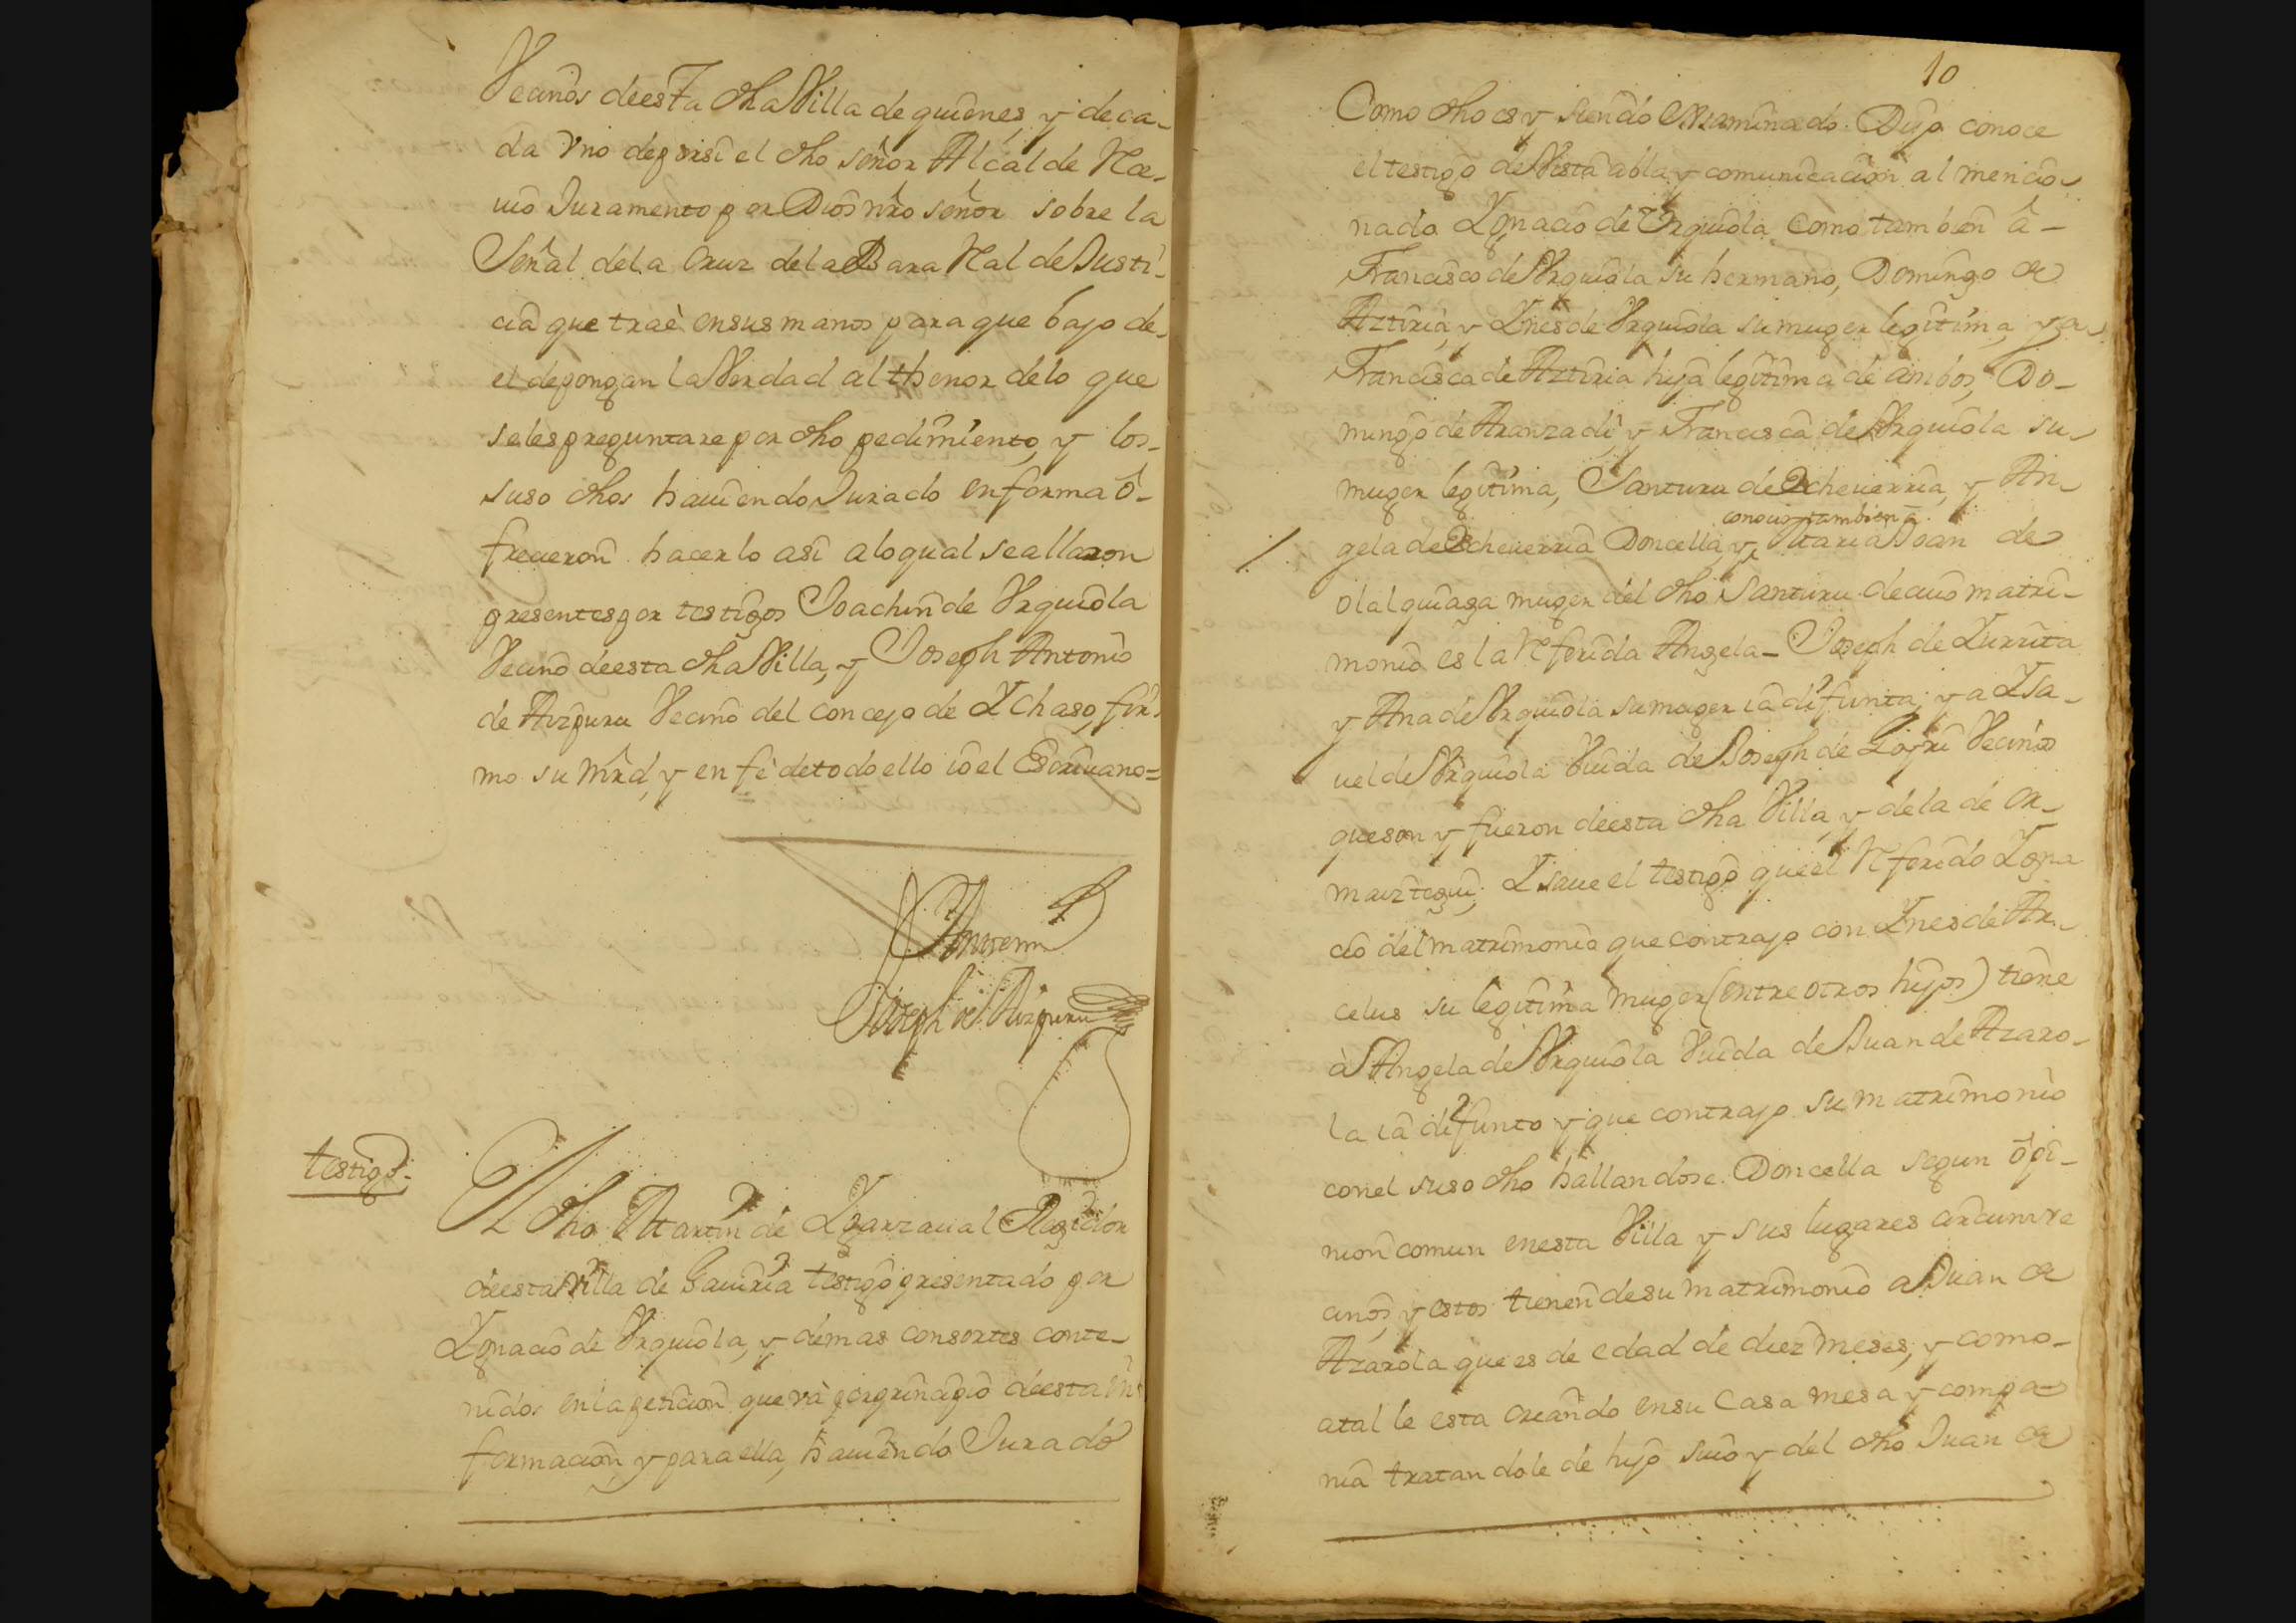 Vecinos deesta dha Villa de quienes, y de ca-
da Vno deporsi el dho señor Alcalde Rece-
uio Juramento por Dios nro señor sobre la
Señal dela Cruz dela Bara Real de Justi-
cia que trae ensus manos para que bajo de-
el depongan la Verdad al thenor delo que
seles preguntare por dho pedimiento, y los-
suso dhos hauiendo Jurado en forma o-
frecieron hacerlo asi alo qual se allaron
presentes por testigos Joachin de Vrquiola
Vecino deesta dha Villa, y Joseph Antonio
de Aizpuru Vecino del concejo de Ychaso, fir-
mo su Mrd, y en fe detodo ello io el Escriuano=
Joseph de Aizpuru
testigo.
El dho Martin de Ygarzaual Regidor
deesta Villa de Gauiria testigo presentado por
Ygnacio de Vrquiola, y demas consortes conte-
nidos enla peticion que va por principio deesta in
formacion, y para ella, hauiendo Jurado
10
Como dho es y siendo examinado. Dijo conoce
el testigo de Vista abla, y comunicacion al mencio-
nado Ygnacio de Vrquiola, como tambien a-
Francisco de Vrquiola su hermano, Domingo de
Aztiria, y Ynes de Vrquiola su muger legitima, y a
Francisca de Aztiria hija legitima de ambos, Do-
mingo de Aranzadi, y Francisca de Vrquiola su-
muger legitima, Santuru de Echeuerria, y An-
conocio tambien a
gela de Echeuerria Doncella, y, Maria Joan de
Olalquiaga muger del dho Santuru de cuio matri-
monio es la Referida Angela- Joseph de Zurrita
y Ana de Vrquiola su muger ia difunta, y a Ysa-
uel de Vrquiola Viuda de Joseph de Goyri Vecinos
que son y fueron deesta dha Villa, y dela de Or-
maiztegui; Y saue el testigo que el Referido Ygna
cio del matrimonio que contrajo con Ynes de Ar-
celus su legitima muger (entre otros hijos) tiene
a Angela de Vrquiola Viuda de Juan de Azaro-
la ia difunto y que contrajo su matrimonio
con el suso dho hallandose Doncella segun opi-
nion comun en esta Villa y sus lugares circumve
cinos, y estos tienen de su matrimonio a Juan de
Azarola que es de edad de diez meses, y como-
atal le esta criando ensu Casa mesa y compa-
nia tratandole de hijo suio y del dho Juan de